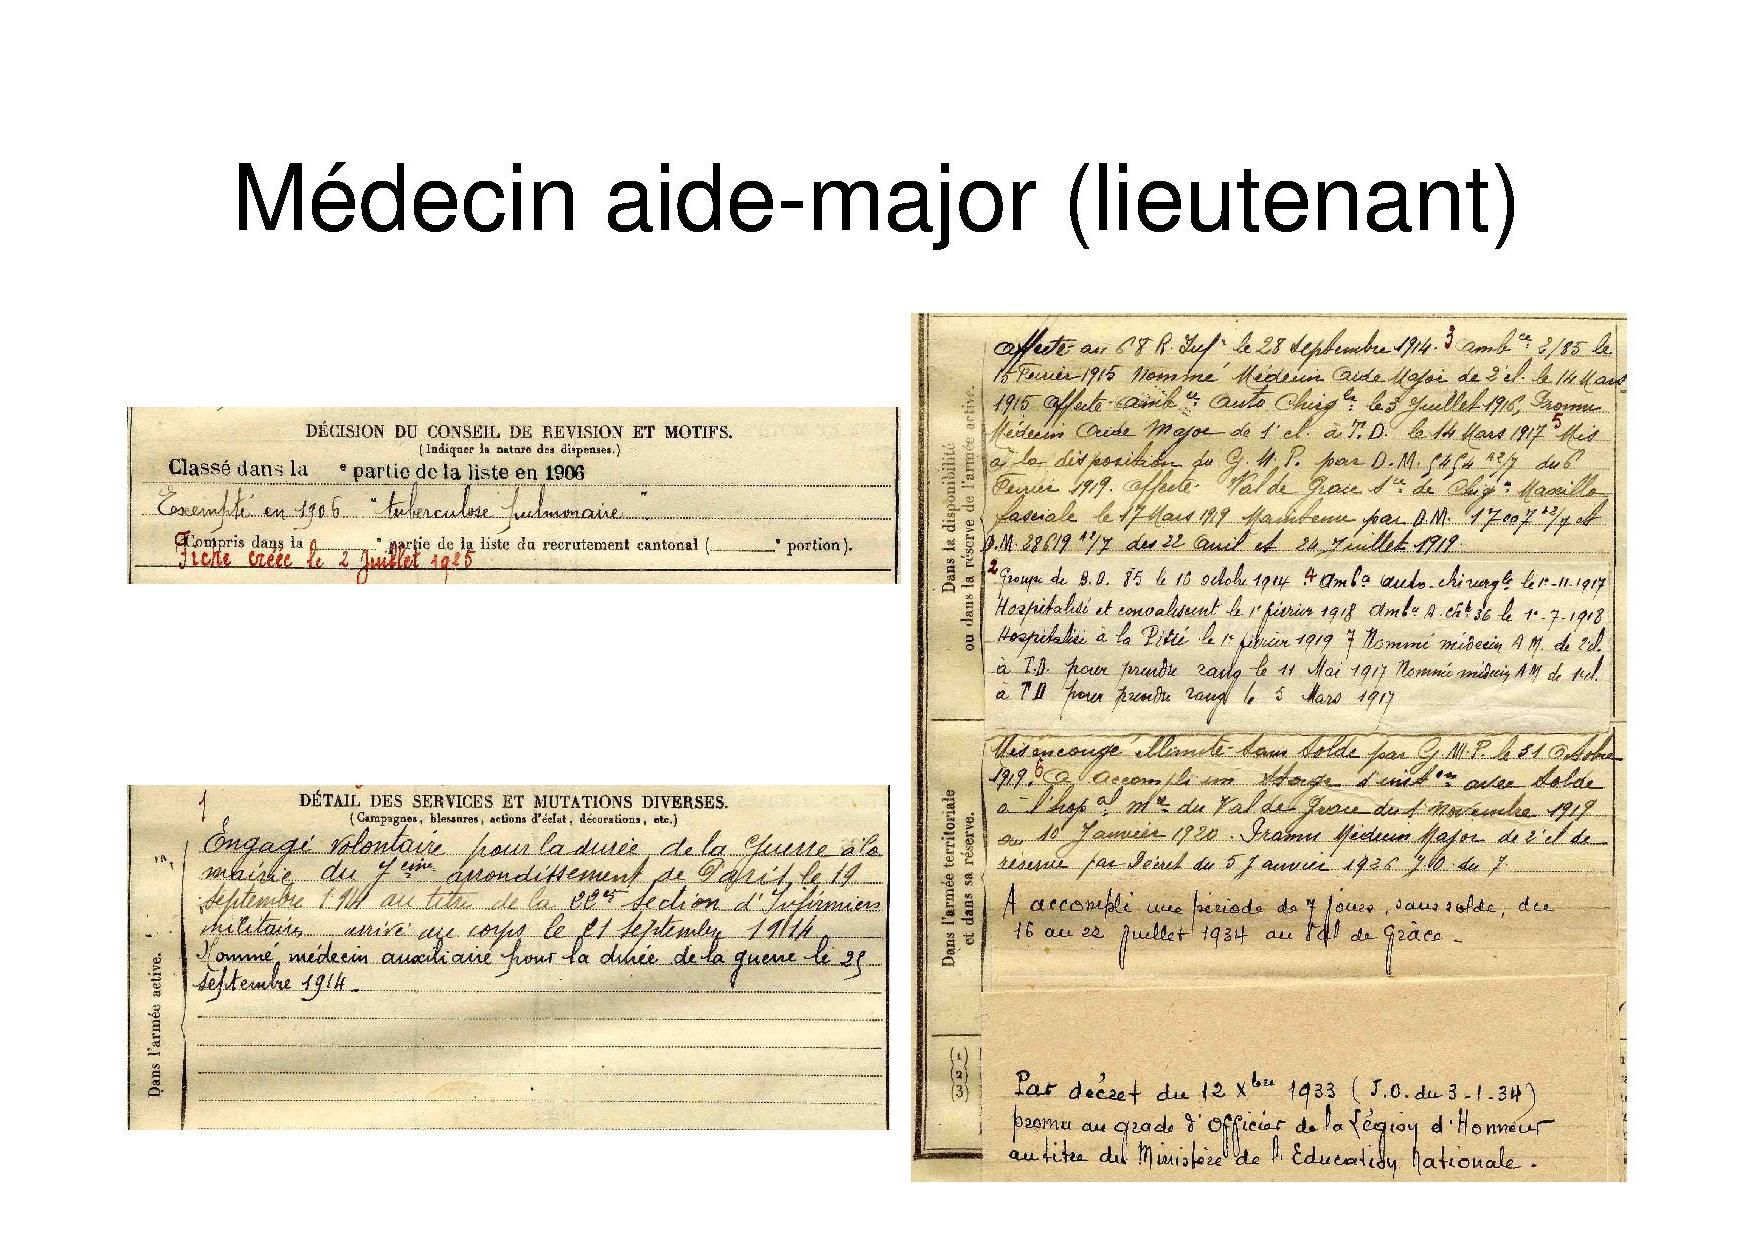 Médecin aide-major (lieutenant)
DÉCISION DU CONSEIL DE REVISION ET MOTIFS.
(Indiquer la nature des dispenses.)
Classé dans la e partie de la liste en 1906
Exempté en 1906 "tuberculose pulmonaire"
Compris dans la e partie de la liste du recrutement cantonal ( e portion).
Fiche créée le 2 Juillet 1925
1
DÉTAIL DES SERVICES ET MUTATIONS DIVERSES.
(Campagnes, blessures, actions d'éclat, décorations, etc.)
Dans l'armée active.
Engagé volontaire pour la durée de la Guerre à la
mairie du 7eme arrondissement de Paris, le 19
septembre 1914 au titre de la 22e section d'Infirmiers
militaires arrivé au corps le 21 septembre 1914
Nommé médecin auxiliaire pour la durée de la guerre le 25
septembre 1914_
Dans la disponibilité
ou dans la réserve de l'armée active.
affecté au 68 R. Inf le 28 septembre 1914. 3 ambce 2/85 le
15 Février 1915 Nommé Médecin Aide Major de 2e cl. le 14 Mars
1915 affecté ambce Auto Chirgle le 3 Juillet 1916, Promu
Médecin Aide Major de 1e cl. à T.D. le 14 Mars 1917 5 Mis
à la disposition du G.M.P. par D.M. 5454 du 6
Février 1919. affecté Val de Grace Sce de Chirgie Maxillo
faciale le 17 Mars 1919 Maintenu par D.M. 17007 et
D.M. 28619 des 22 avril et 24 Juillet 1919.
2 Groupe de B.D. 85 le 10 octobre 1914 4 Ambce auto-chirurgle le 1er-11-1917
Hospitalisé et convalescent le 1er février 1918 Ambce A. Chle 36 le 1er-7-1918
Hospitalisé à la Pitié le 1er février 1919 7 Nommé médecin A M. de 2e cl.
à T.D. pour prendre rang le 11 Mai 1917 Nommé médecin AM de 1e cl.
à TD pour prendre rang le 5 Mars 1917
Dans l'armée territoriale
et dans sa réserve.
Mis en congé illimité sans solde par G.M.P. le 31 Octobre
1919. 6 A accompli un stage d'instion avec solde
à l'hopal mre du Val de Grace du 1 novembre 1919
au 10 Janvier 1920. Promu Médecin Major de 2e cl de
réserve par Décret du 5 Janvier 1926 J.O. du 7.
A accompli une période de 7 jours, sans solde, du
16 au 22 Juillet 1934 au Val de Grâce_
(1)
(2)
(3)
Par décret du 12 Xbre 1933 (J.O. du 3-1-34)
promu au grade d'Officier de la Légion d'Honneur
au titre du Ministère de l'Education Nationale.